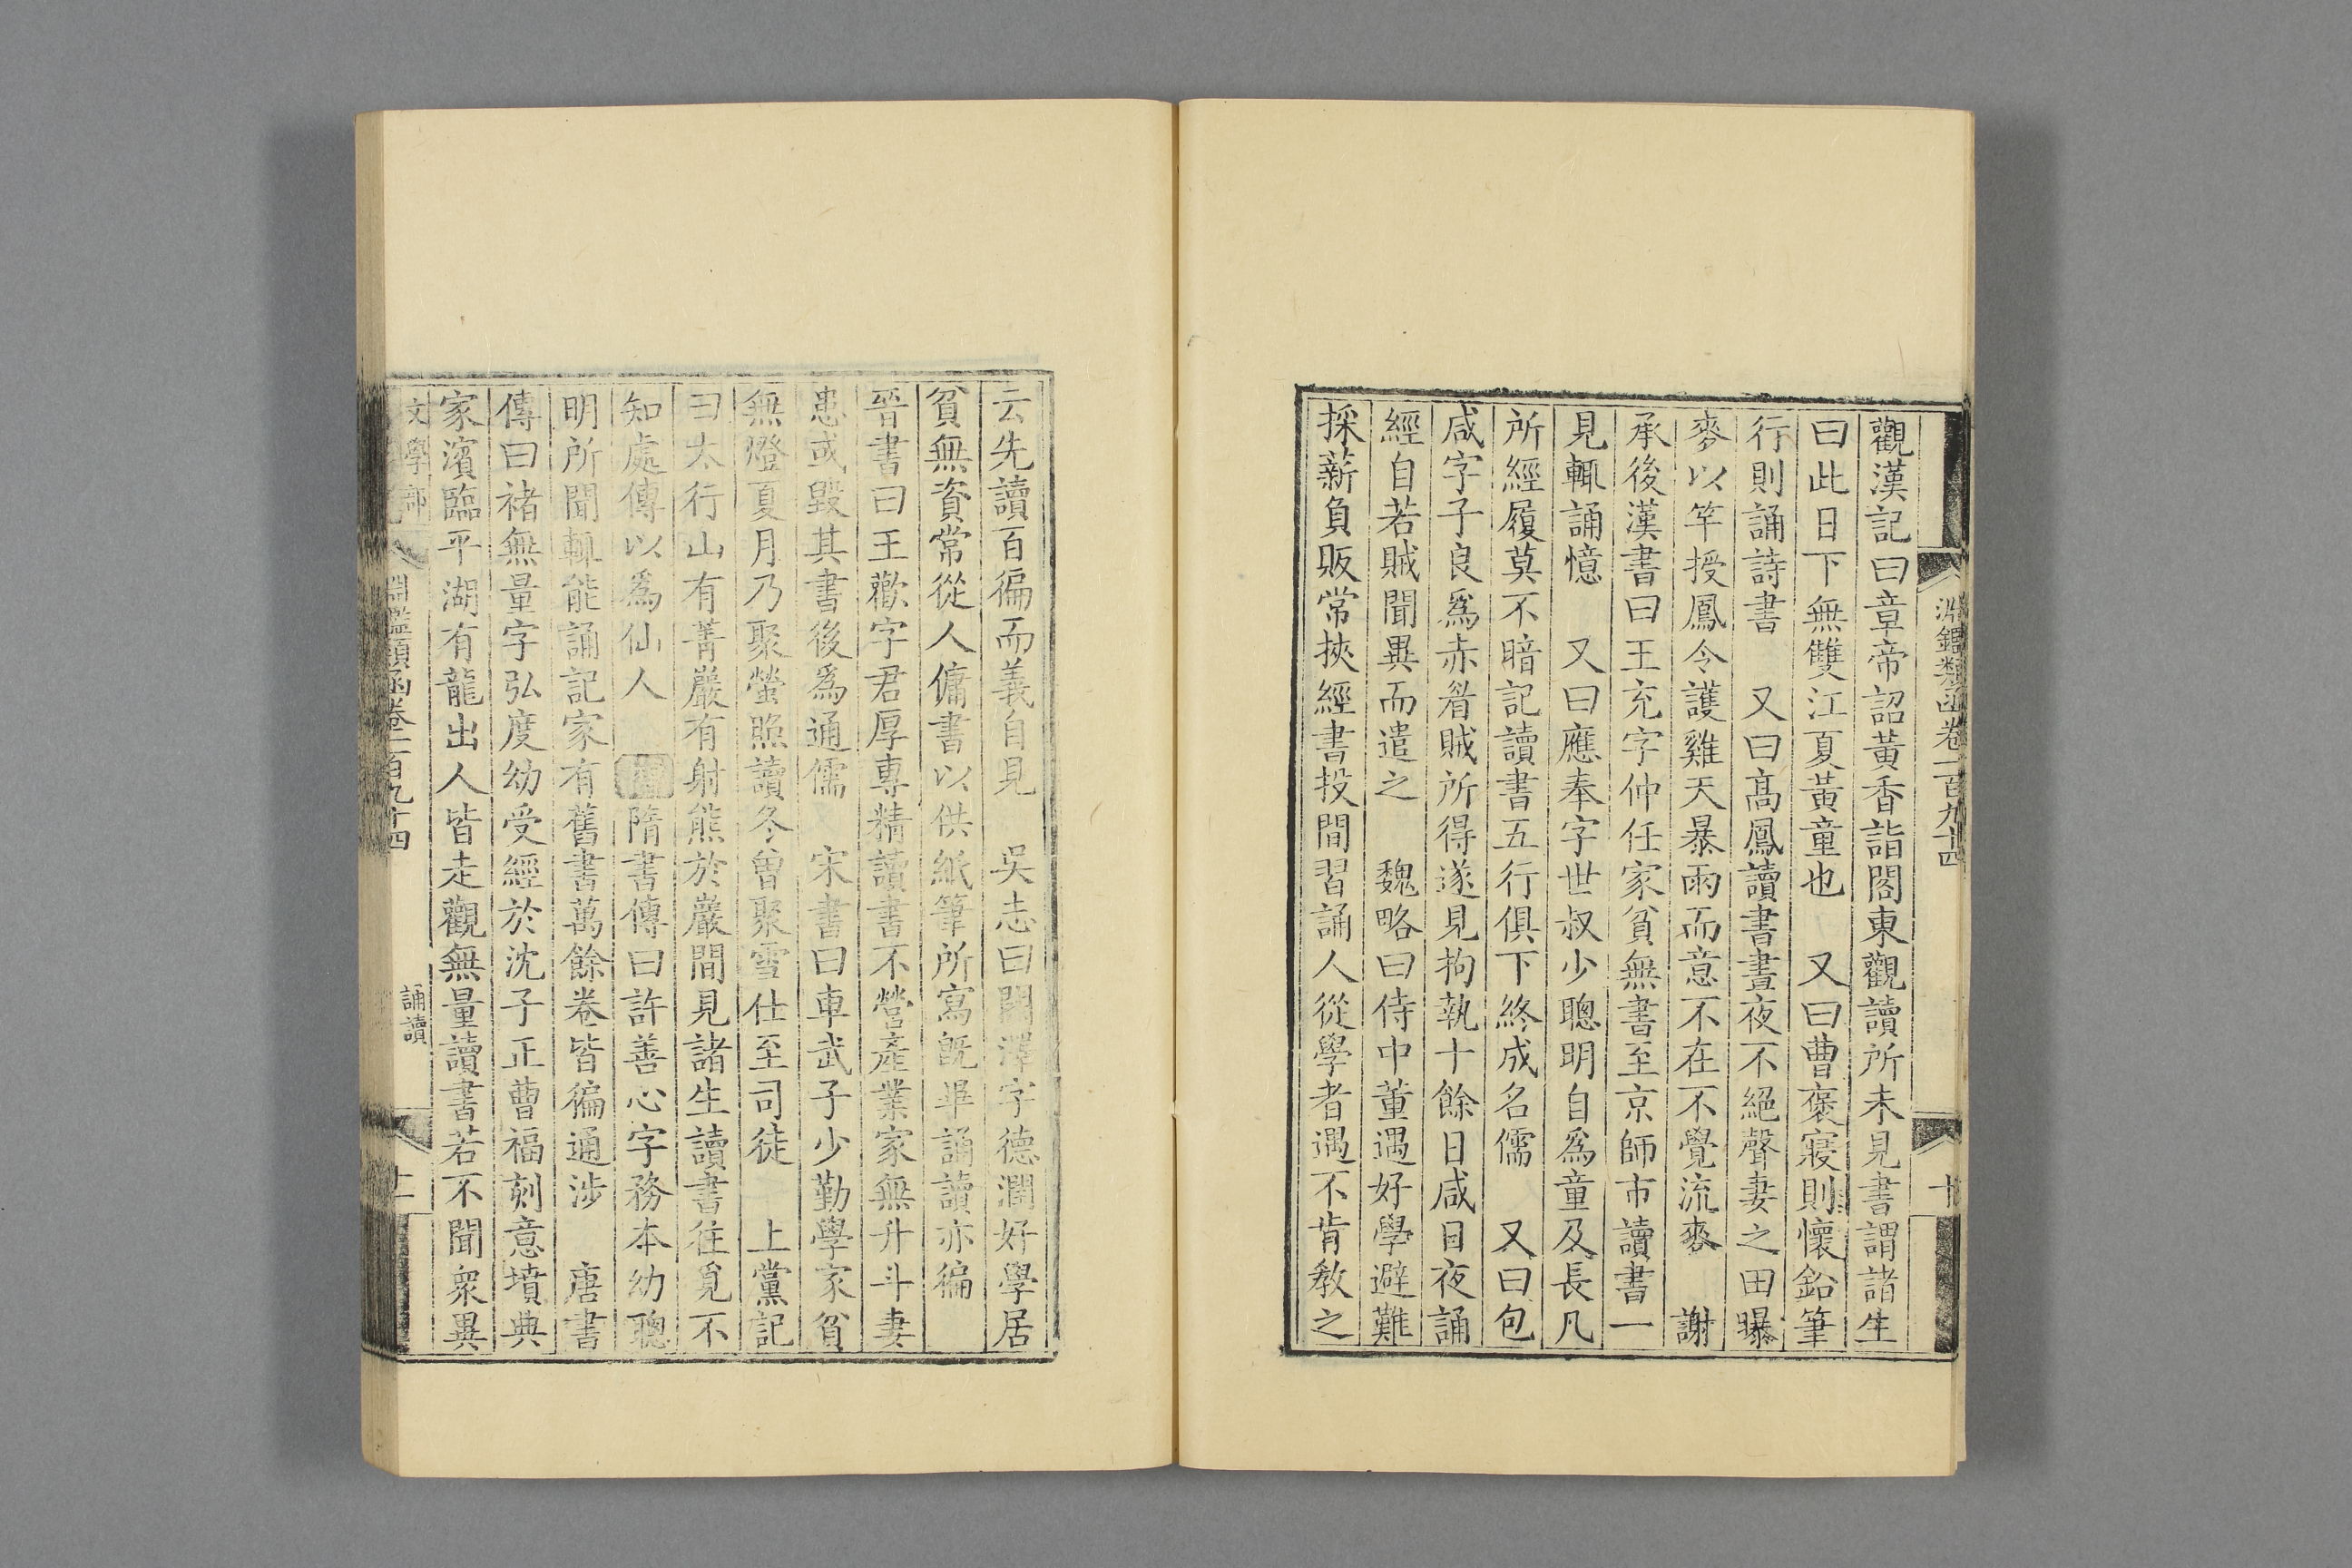 淵鑑類函卷一百九十四
十
觀漢記曰章帝詔黃香詣閣東觀讀所未見書謂諸生
曰此日下無雙江夏黃童也　又曰曹褒寢則懷鉛筆
行則誦詩書　又曰高鳳讀書晝夜不絕聲妻之田曝
麥以竿授鳳令護雞天暴雨而意不在不覺流麥　謝
承後漢書曰王充字仲任家貧無書至京師市讀書一
見輒誦憶　又曰應奉字世叔少聰明自爲童及長凡
所經履莫不暗記讀書五行俱下終成名儒　又曰包
咸字子良爲赤眉賊所得遂見拘執十餘日咸日夜誦
經自若賊聞異而遣之　魏略曰侍中董遇好學避難
採薪負販常挾經書投間習誦人從學者遇不肯教之
云先讀百徧而義自見　吳志曰闞澤字德潤好學居
貧無資常從人傭書以供紙筆所寫旣畢誦讀亦徧
晉書曰王歡字君厚專精讀書不營產業家無升斗妻
患或毀其書後爲通儒　宋書曰車武子少勤學家貧
無燈夏月乃聚螢照讀冬曾聚雪仕至司徒　上黨記
曰太行山有菁巖有射熊於巖間見諸生讀書往覓不
知處傳以爲仙人　隋書傳曰許善心字務本幼聰
明所聞輒能誦記家有舊書萬餘卷皆徧通涉　唐書
傳曰褚無量字弘度幼受經於沈子正曹福刻意墳典
家濱臨平湖有龍出人皆走觀無量讀書若不聞衆異
文學部
淵鑑類函卷一百九十四
誦讀